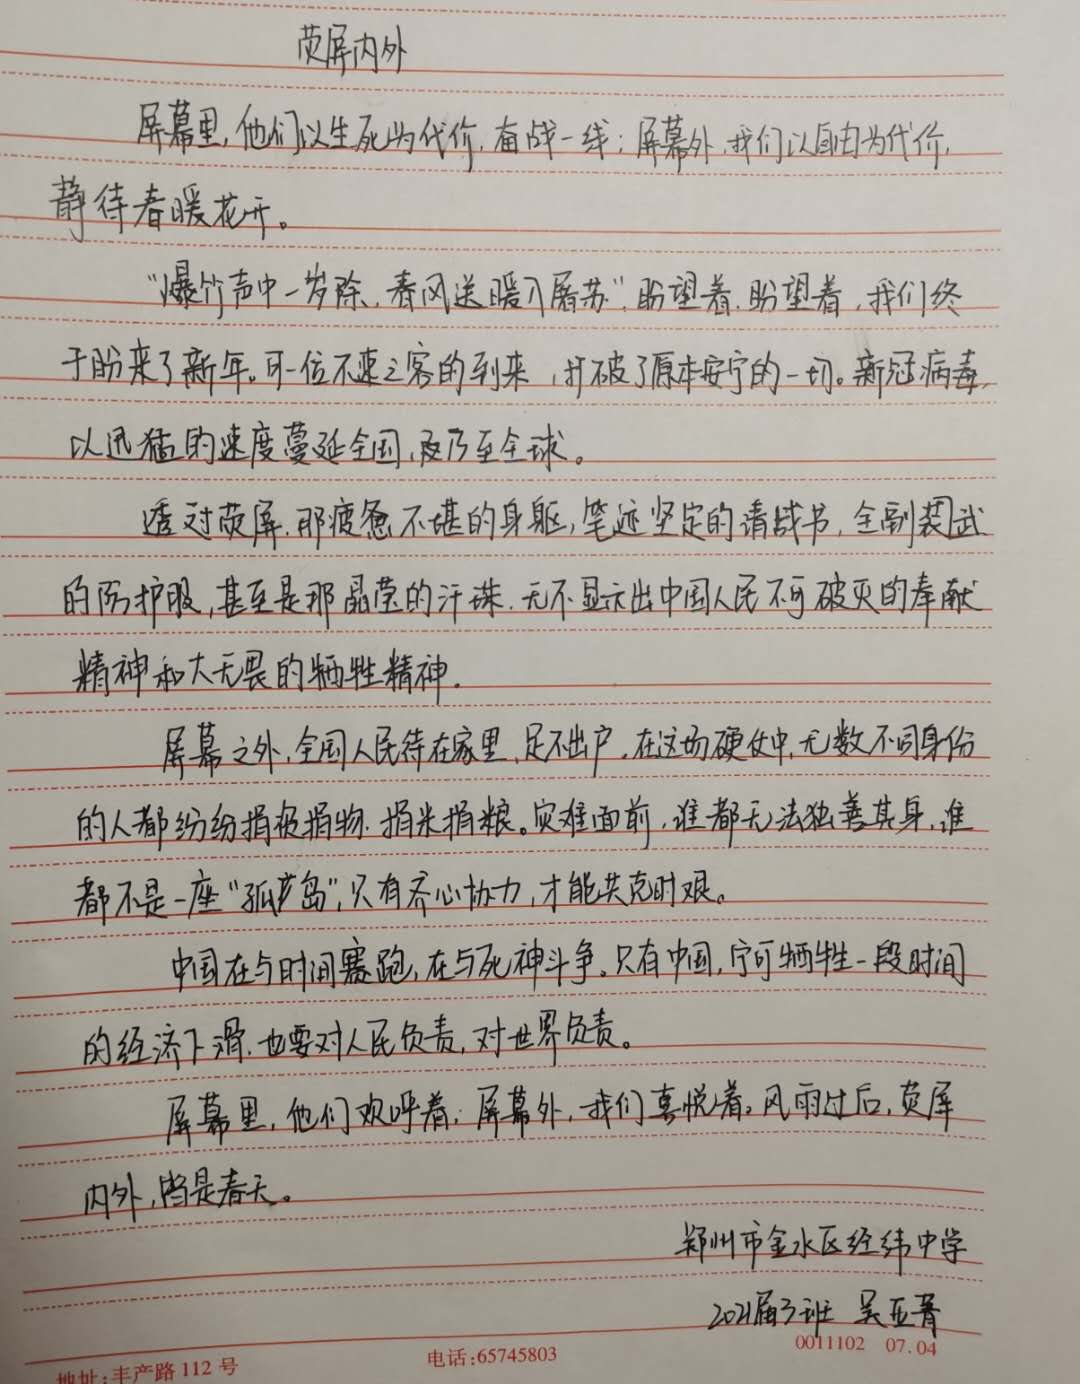 荧屏内外
屏幕里,他们以生死为代价,奋战一线;屏幕外,我们以自由为代价,
静待春暖花开。
“爆竹声中一岁除,春风送暖入屠苏”,盼望着,盼望着,我们终
于盼来了新年。可一位不速之客的到来,打破了原本安宁的一切。新冠病毒,
以迅猛的速度蔓延全国,及乃至全球。
透过荧屏,那疲惫不堪的身躯,笔迹坚定的请战书,全副装武
的防护服,甚至是那晶莹的汗珠,无不显示出中国人民不可破灭的奉献
精神和大无畏的牺牲精神.
屏幕之外,全国人民待在家里,足不出户.在这场硬仗中,无数不同身份
的人都纷纷捐被捐物,捐米捐粮。灾难面前,谁都无法独善其身,谁
都不是一座“孤芦岛”,只有齐心协力,才能共克时艰。
中国在与时间赛跑,在与死神斗争。只有中国,宁可牺牲一段时间
的经济下滑,也要对人民负责,对世界负责。
屏幕里,他们欢呼着;屏幕外,我们喜悦着。风雨过后,荧屏
内外,皆是春天。
郑州市金水区经纬中学
2021届3班 吴亚菁
地址:丰产路112号 电话:65745803 0011102 07.04